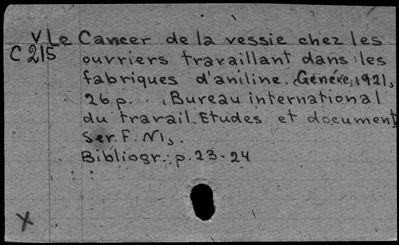 V Le Cancer de la vessie chez les
C 215 ouvriers travaillant dans les
fabriques d'aniline. Genève, 1921,
26 p. . , Bureau international
du travail. Etudes et document
Ser. F. N1,.
Bibliogr.: p. 23-24
X